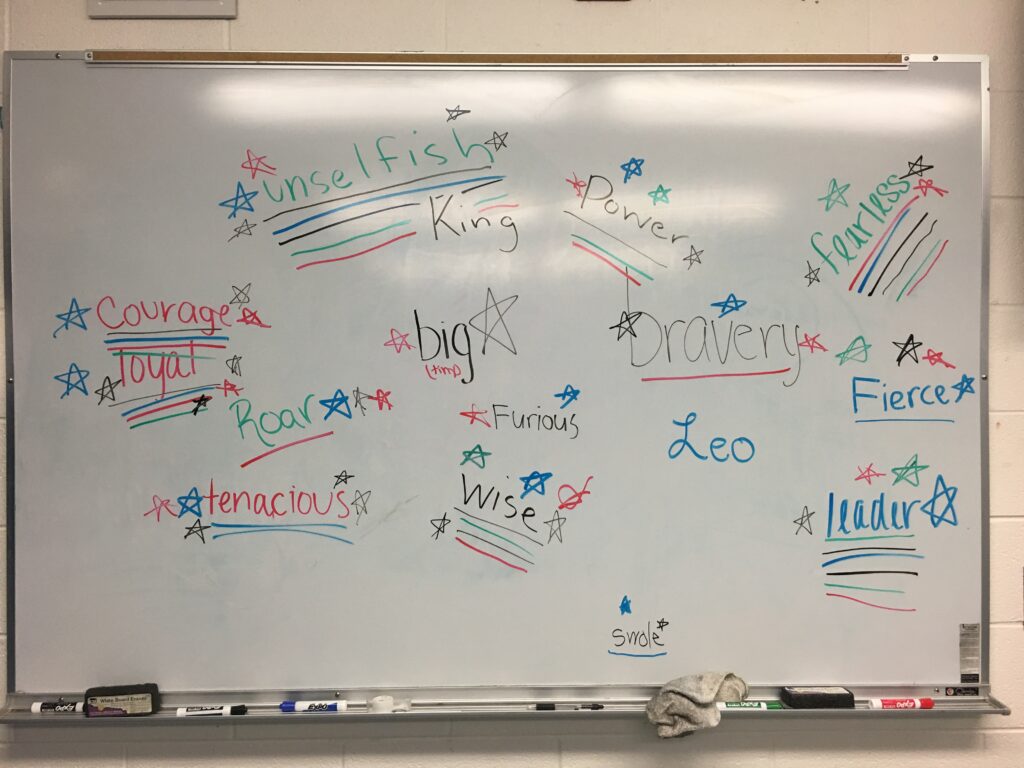 unselfish
King
Power
fearless
Courage
loyal
big
Bravery
Fierce
Roar
Furious
Leo
tenacious
Wise
leader
smole
White Board Eraser
EXPO
EXPO
EXPO
EXPO
EXPO